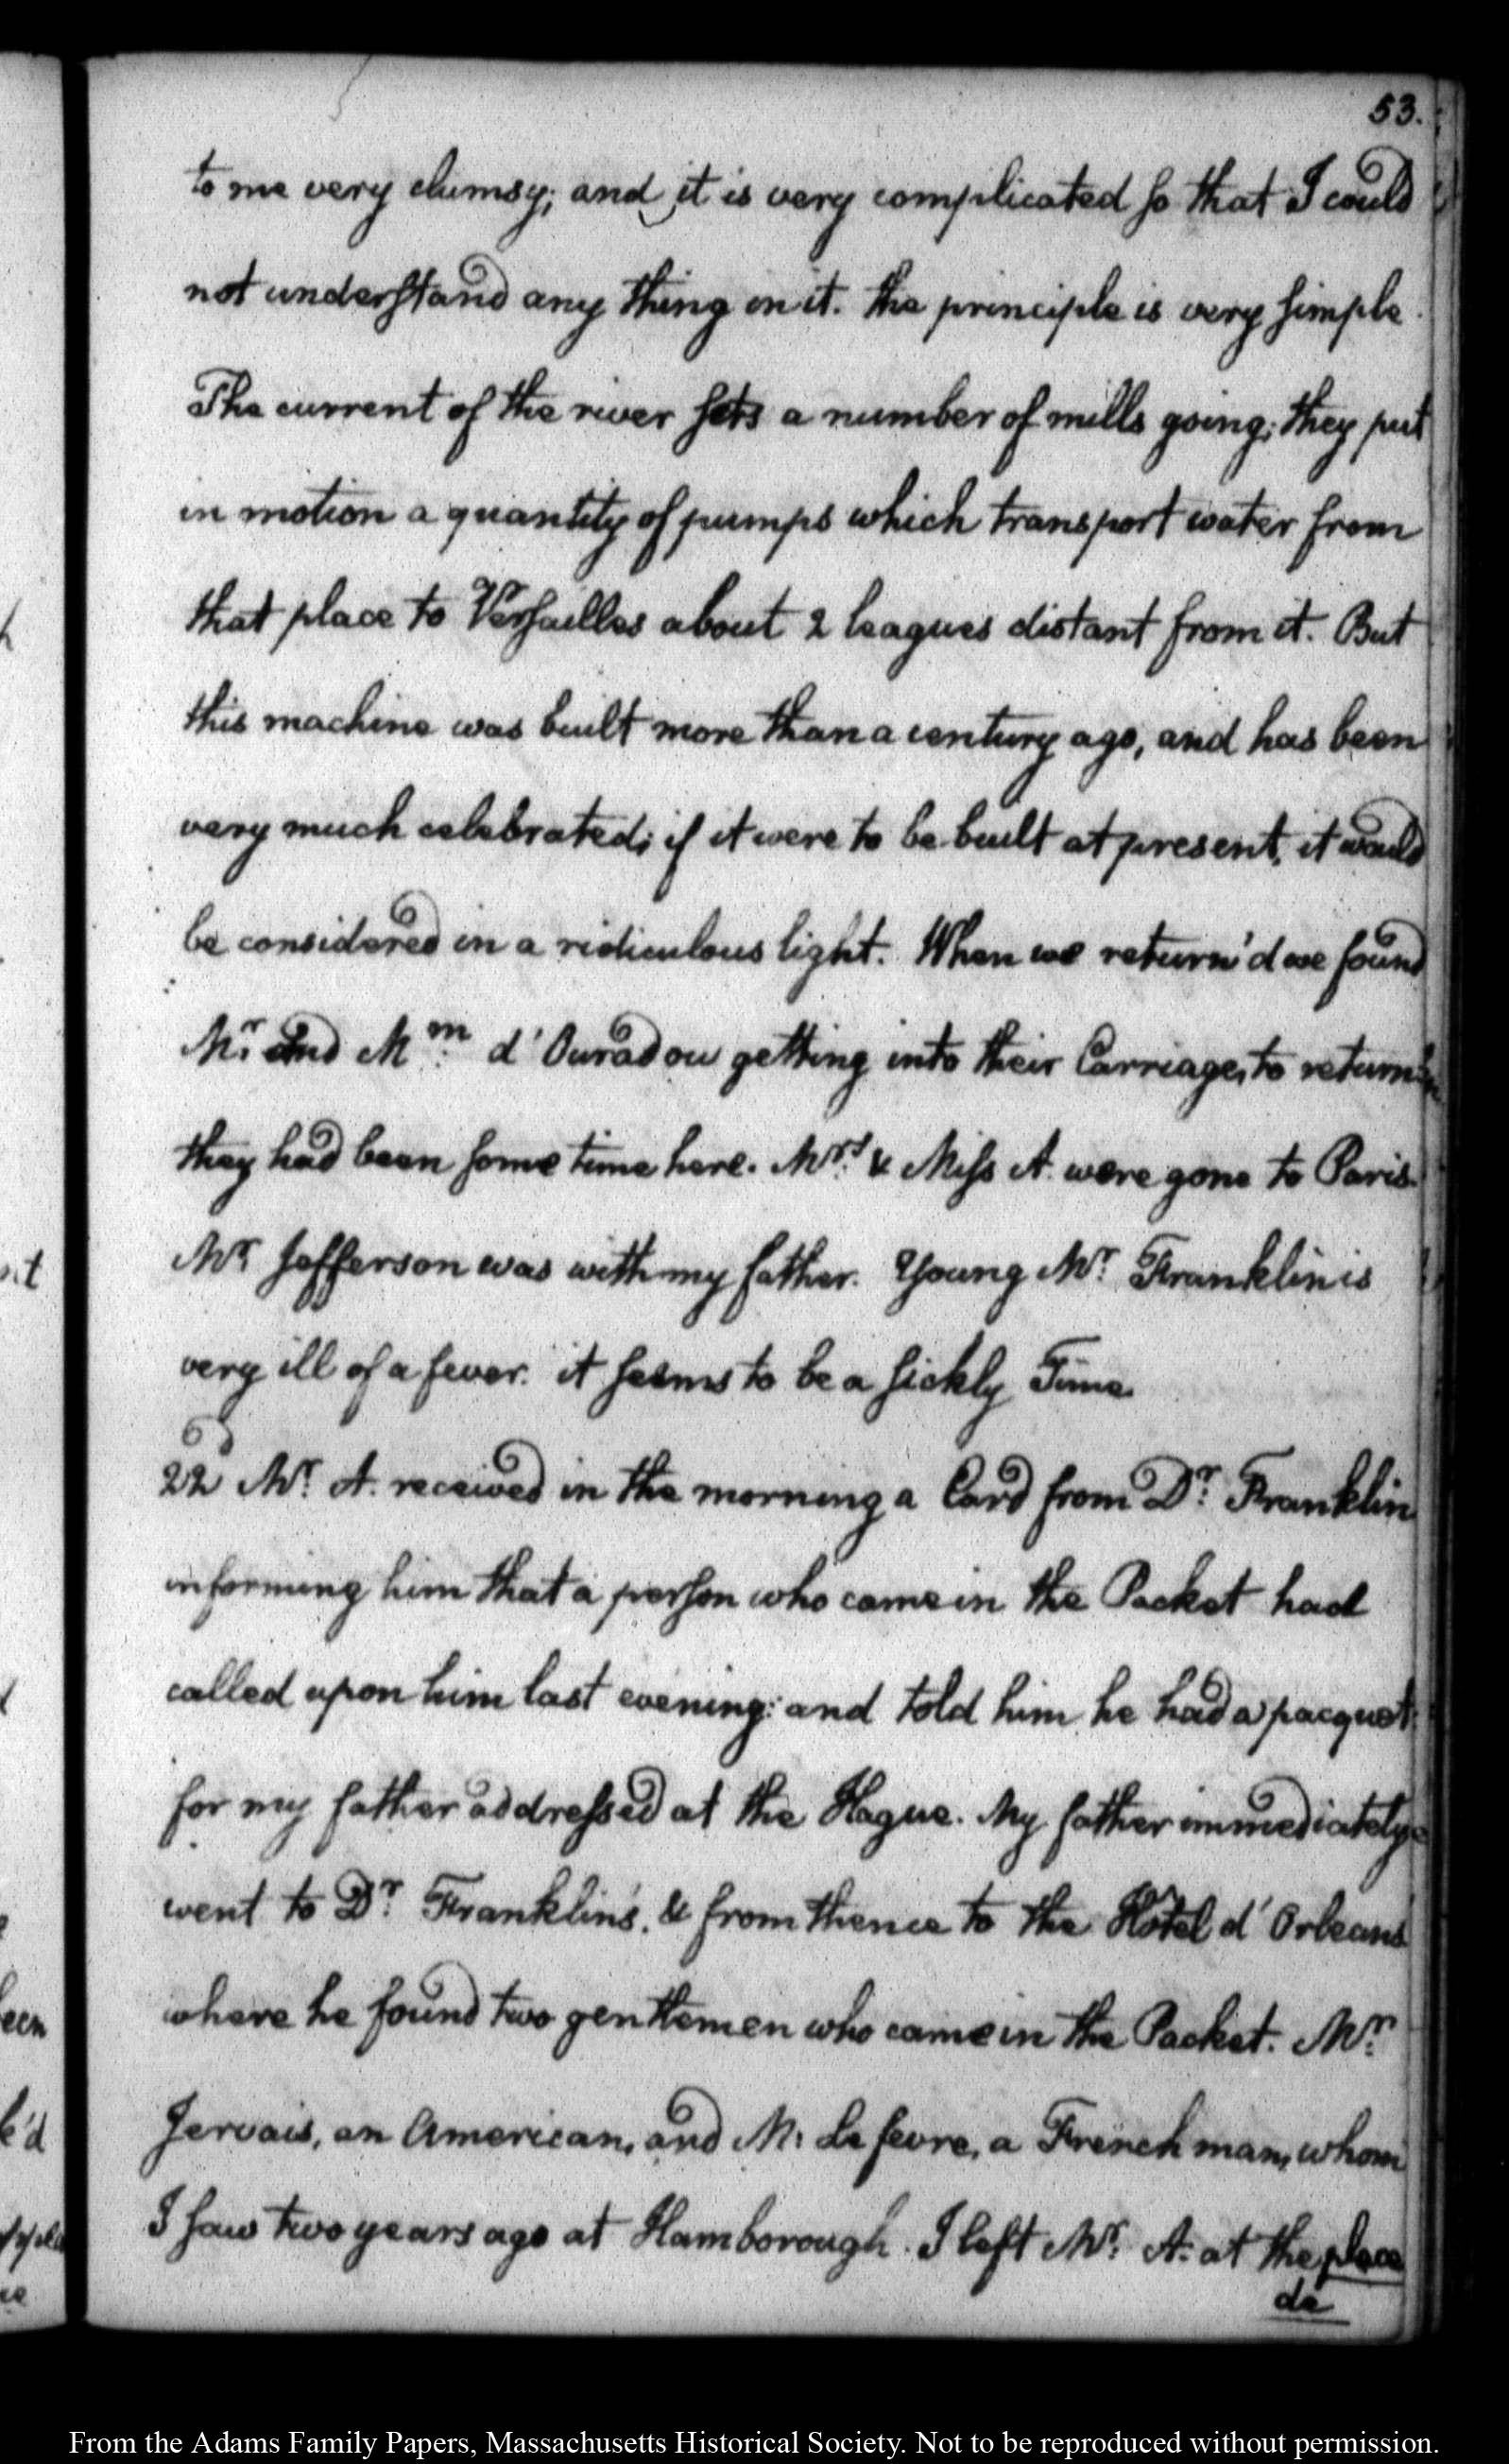 53.
to me very clumsy; and it is very complicated so that I could
not understand any thing in it. the principle is very simple.
The current of the river sets a number of mills going; they put
in motion a quantity of pumps which transport water from
that place to Versailles about 2 leagues distant from it. But
this machine was built more than a century ago, and has been
very much celebrated; if it were to be built at present, it would
be considered in a ridiculous light. When we return'd we found
Mr. and Mm. d'Ouradou getting into their Carriage, to return
they had been some time here. Mrs. & Miss A. were gone to Paris.
Mr. Jefferson was with my father. Young Mr. Franklin is
very ill of a fever. it seems to be a sickly Time.
22d Mr. A. received in the morning a Card from Dr. Franklin
informing him that a person who came in the Packet had
called upon him last evening: and told him he had a pacquet
for my father addressed at the Hague. My father immediately
went to Dr. Franklin's. & from thence to the Hôtel d'Orleans
where he found two gentlemen who came in the Packet. Mr.
Jervais, an American, and M. Le fevre, a Frenchman, whom
I saw two years ago at Hamborough. I left Mr. A. at the place
de
From the Adams Family Papers, Massachusetts Historical Society. Not to be reproduced without permission.